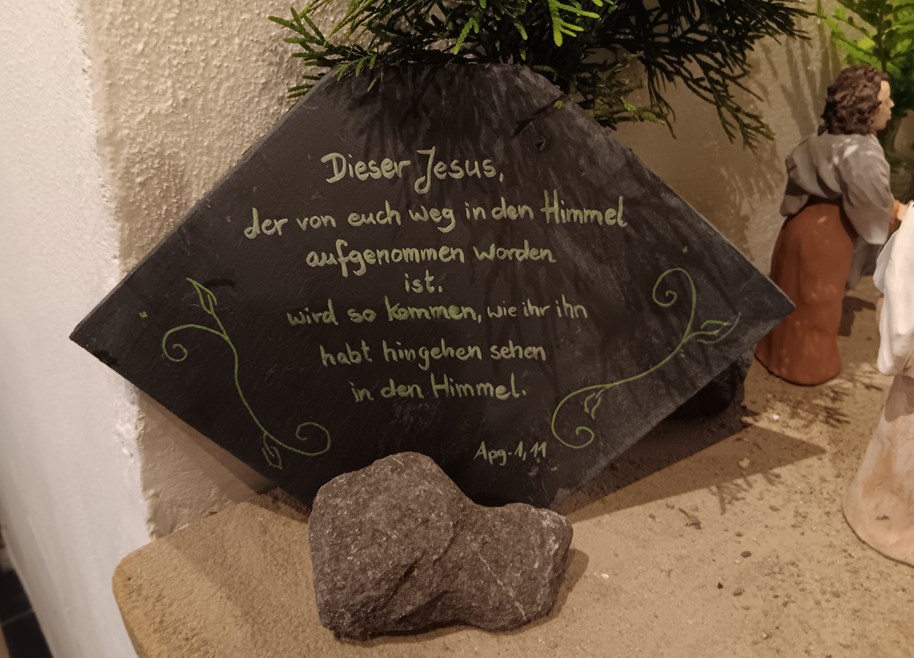 Dieser Jesus,
der von euch weg in den Himmel
aufgenommen worden
ist.
wird so kommen, wie ihr ihn
habt hingehen sehen
in den Himmel.
Apg. 1, 11